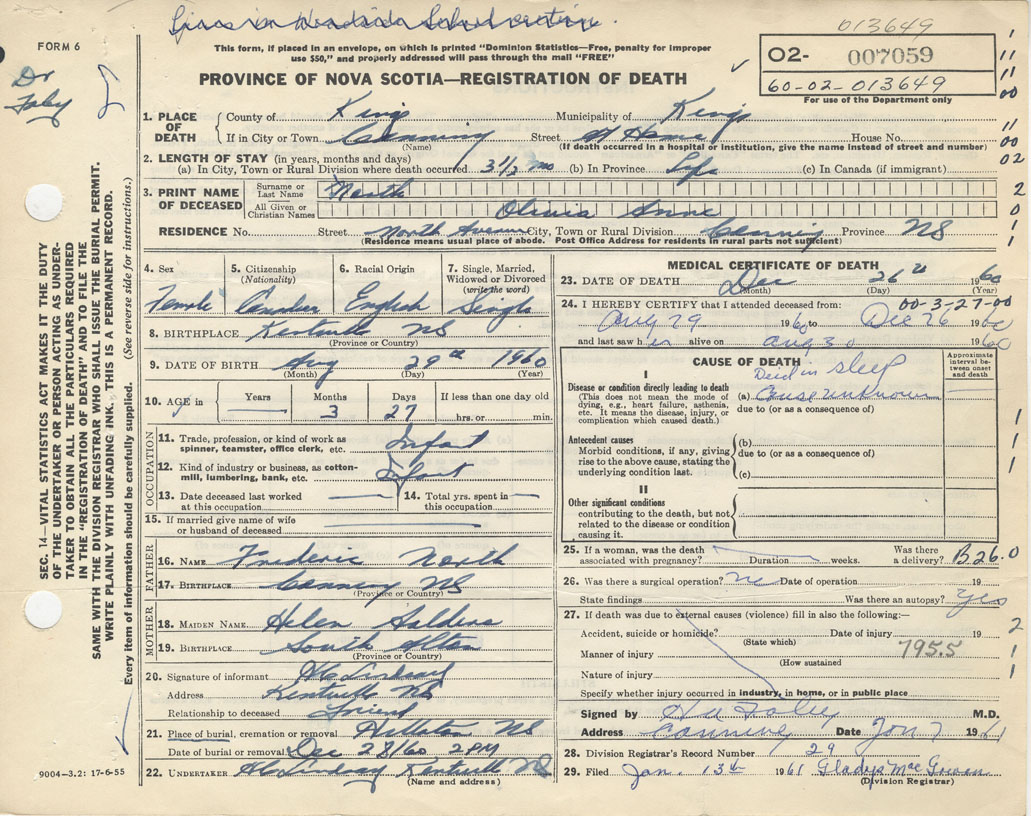 013649
FORM 6
This form, if placed in an envelope, on which is printed "Dominion Statistics—Free, penalty for improper
use $50," and properly addressed will pass through the mail "FREE"
02- 007059
60-02-013649
For use of the Department only
Dr
Foley
PROVINCE OF NOVA SCOTIA—REGISTRATION OF DEATH
1. PLACE OF DEATH County of Kings Municipality of Kings
If in City or Town Canning Street At Home House No.
(Name) (If death occurred in a hospital or institution, give the name instead of street and number)
2. LENGTH OF STAY (in years, months and days)
(a) In City, Town or Rural Division where death occurred 3 1/2 mo (b) In Province Life (c) In Canada (if immigrant)
3. PRINT NAME OF DECEASED Surname or Last Name North
All Given or Christian Names Olivia Anne
RESIDENCE No. Street North Avenue City, Town or Rural Division Canning Province NS
(Residence means usual place of abode. Post Office Address for residents in rural parts not sufficient)
4. Sex 5. Citizenship (Nationality) 6. Racial Origin 7. Single, Married, Widowed or Divorced (write the word)
Female English Single
8. BIRTHPLACE Kentville NS
(Province or Country)
9. DATE OF BIRTH Aug 29th 1960
(Month) (Day) (Year)
10. AGE in Years Months Days If less than one day old
3 27 hrs. or min.
OCCUPATION
11. Trade, profession, or kind of work as spinner, teamster, office clerk, etc. Infant
12. Kind of industry or business, as cotton-mill, lumbering, bank, etc. Infant
13. Date deceased last worked at this occupation 14. Total yrs. spent in this occupation
15. If married give name of wife or husband of deceased
FATHER
16. NAME Frederic North
17. BIRTHPLACE Canning NS
(Province or Country)
MOTHER
18. MAIDEN NAME Helen
19. BIRTHPLACE South Alton
(Province or Country)
20. Signature of informant HC Lindsay
Address Kentville NS
Relationship to deceased Friend
21. Place of burial, cremation or removal NS
Date of burial or removal Dec 28/60 2 PM
22. UNDERTAKER HC Lindsay Kentville NS
(Name and address)
MEDICAL CERTIFICATE OF DEATH
23. DATE OF DEATH Dec 26th 1960
(Month) (Day) (Year)
24. I HEREBY CERTIFY that I attended deceased from: 00-3-27-00
Aug 29 1960 to Dec 26 1960
and last saw her alive on Aug 30 1960
CAUSE OF DEATH
Approximate interval between onset and death
I
Died in sleep
Disease or condition directly leading to death
(This does not mean the mode of dying, e.g., heart failure, asthenia, etc. It means the disease, injury, or complication which caused death.)
(a) Cause unknown
due to (or as a consequence of)
Antecedent causes
Morbid conditions, if any, giving rise to the above cause, stating the underlying condition last.
(b)
due to (or as a consequence of)
(c)
II
Other significant conditions
contributing to the death, but not related to the disease or condition causing it.
25. If a woman, was the death associated with pregnancy? Duration weeks. Was there a delivery? B26.0
26. Was there a surgical operation? no Date of operation 19
State findings Was there an autopsy? Yes
27. If death was due to external causes (violence) fill in also the following:—
Accident, suicide or homicide? Date of injury 19
(State which)
Manner of injury 795.5
(How sustained)
Nature of injury
Specify whether injury occurred in industry, in home, or in public place
Signed by Foley M.D.
Address Canning Date Jan 7 1961
28. Division Registrar's Record Number 29
29. Filed Jan. 13th 1961 Gladys
(Division Registrar)
SEC. 14—VITAL STATISTICS ACT MAKES IT THE DUTY
OF THE UNDERTAKER OR PERSON ACTING AS UNDER-
TAKER TO OBTAIN ALL THE PARTICULARS REQUIRED
IN THE "REGISTRATION OF DEATH" AND TO FILE THE
SAME WITH THE DIVISION REGISTRAR WHO SHALL ISSUE THE BURIAL PERMIT.
WRITE PLAINLY WITH UNFADING INK. THIS IS A PERMANENT RECORD.
Every item of information should be carefully supplied. (See reverse side for instructions.)
9004—3.2: 17-6-55